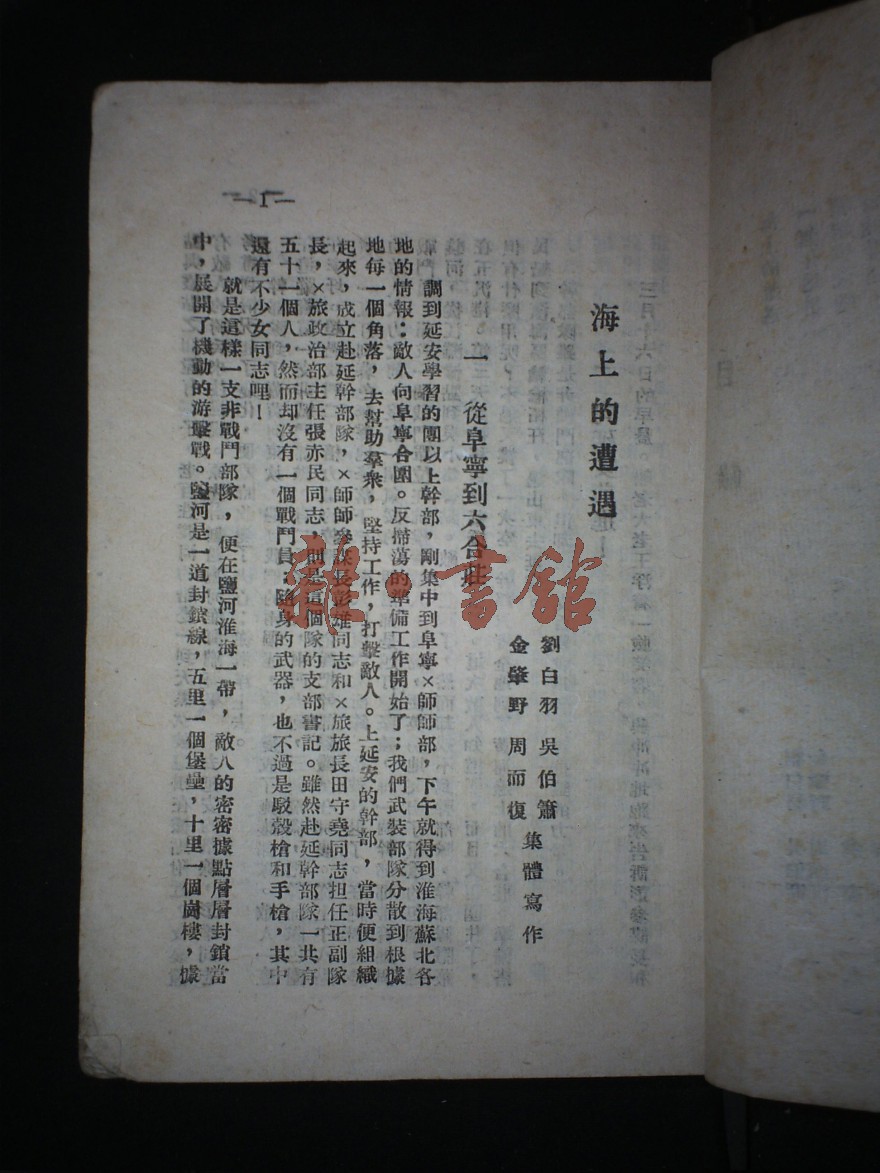 海上的遭遇
劉白羽 吳伯簫
金肇野 周而復 集體寫作
一 從阜寧到六合莊
調到延安學習的團以上幹部,剛集中到阜寧×師師部,下午就得到淮海蘇北各
地的情報:敵人向阜寧合圍。反掃蕩的準備工作開始了;我們武裝部隊分散到根據
地每一個角落,去幫助羣衆,堅持工作,打擊敵人。上延安的幹部,當時便組織
起來,成立赴延幹部隊,×師師參謀長彭雄同志和×旅旅長田守堯同志担任正副隊
長,×旅政治部主任張亦民同志,則是這個隊的支部書記。雖然赴延幹部隊一共有
五十一個人,然而却沒有一個戰鬥員;隨身的武器,也不過是駁殼槍和手槍,其中
還有不少女同志哩!
就是這樣一支非戰鬥部隊,便在鹽河淮海一帶,敵人的密密據點層層封鎖當
中,展開了機動的游擊戰。鹽河是一道封鎖線,五里一個堡壘,十里一個崗樓,據
—1—
雜·書館